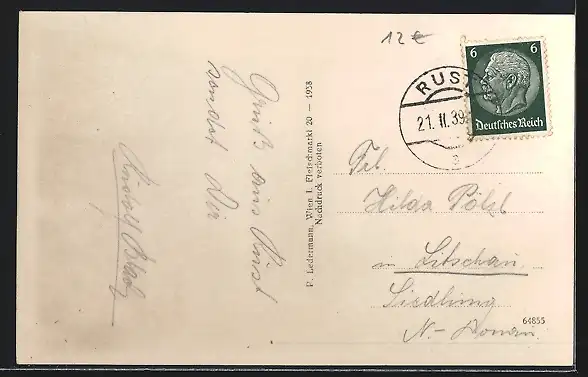 12 €
6 6
Deutsches Reich
RUST
21. II. 39
a
Gruß aus Rust
sendet Dir
P. Ledermann, Wien I. Fleischmarkt 20 — 1938
Nachdruck verboten
Frl.
Hilda Pölzl
in Litschau
Siedlung
N-Donau.
64855